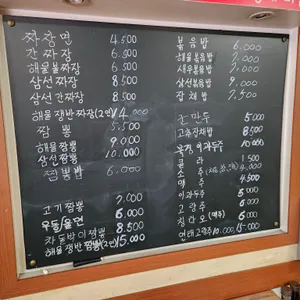 짜장면 4.500
간짜장 6.500
해물짜장
삼선짜장 8.500
삼선간장 8.500
해물쟁반짜장(2인) 14.000
짬뽕 5.500
해물짬뽕 9.000
삼선짬뽕 10.000
짬뽕밥 6.000
고기짬뽕 7.000
우동/울면 6.000
차돌박이짬뽕 8.500
해물쟁반짬뽕(2인) 15.000
볶음밥 6.000
해물볶음밥 7.000
새우볶음밥 7.000
삼선볶음밥 8.500
잡채밥 7.500
군만두 5.000
고추잡채밥 8.500
북경이과두주 10.000
콜라 1.500
소주 4.000
맥주 4.500
이과두주 5.000
고량주 6.000
칭따오(맥주) 6.000
연태고량주 10.000, 15.000